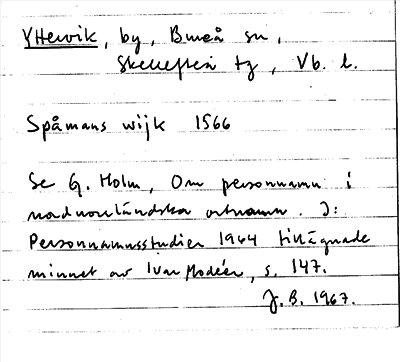 Yttervik, by, Bureå sn,
Skellefteå tg, Vb. l.
Spåmans wijk 1566
Se G. Holm, Om personnamn i
nordnorländska ortnamn. I:
Personnamnsstudier 1964 tillägnade
minnet av Ivar Modéer, s. 147.
J. B. 1967.